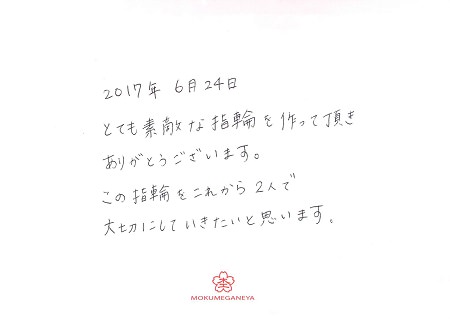 2017年 6月24日
とても素敵な指輪を作って頂き
ありがとうございます。
この指輪をこれから2人で
大切にしていきたいと思います。
MOKUMEGANEYA